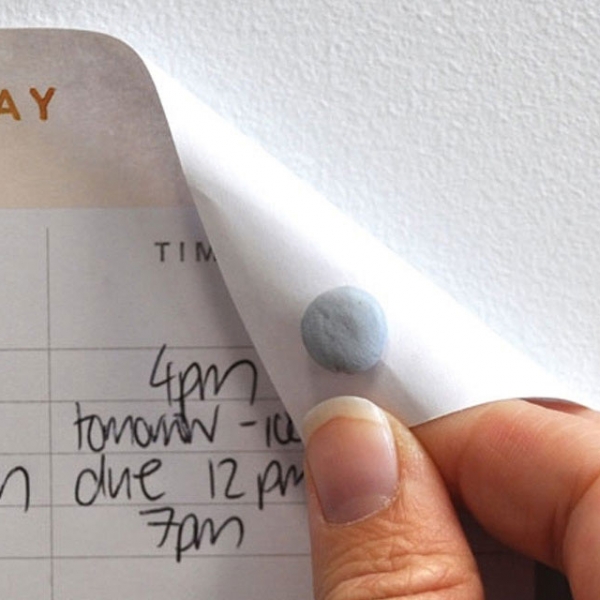 AY
TIM
4pm
tomorrow - 10
due 12pm
7pm